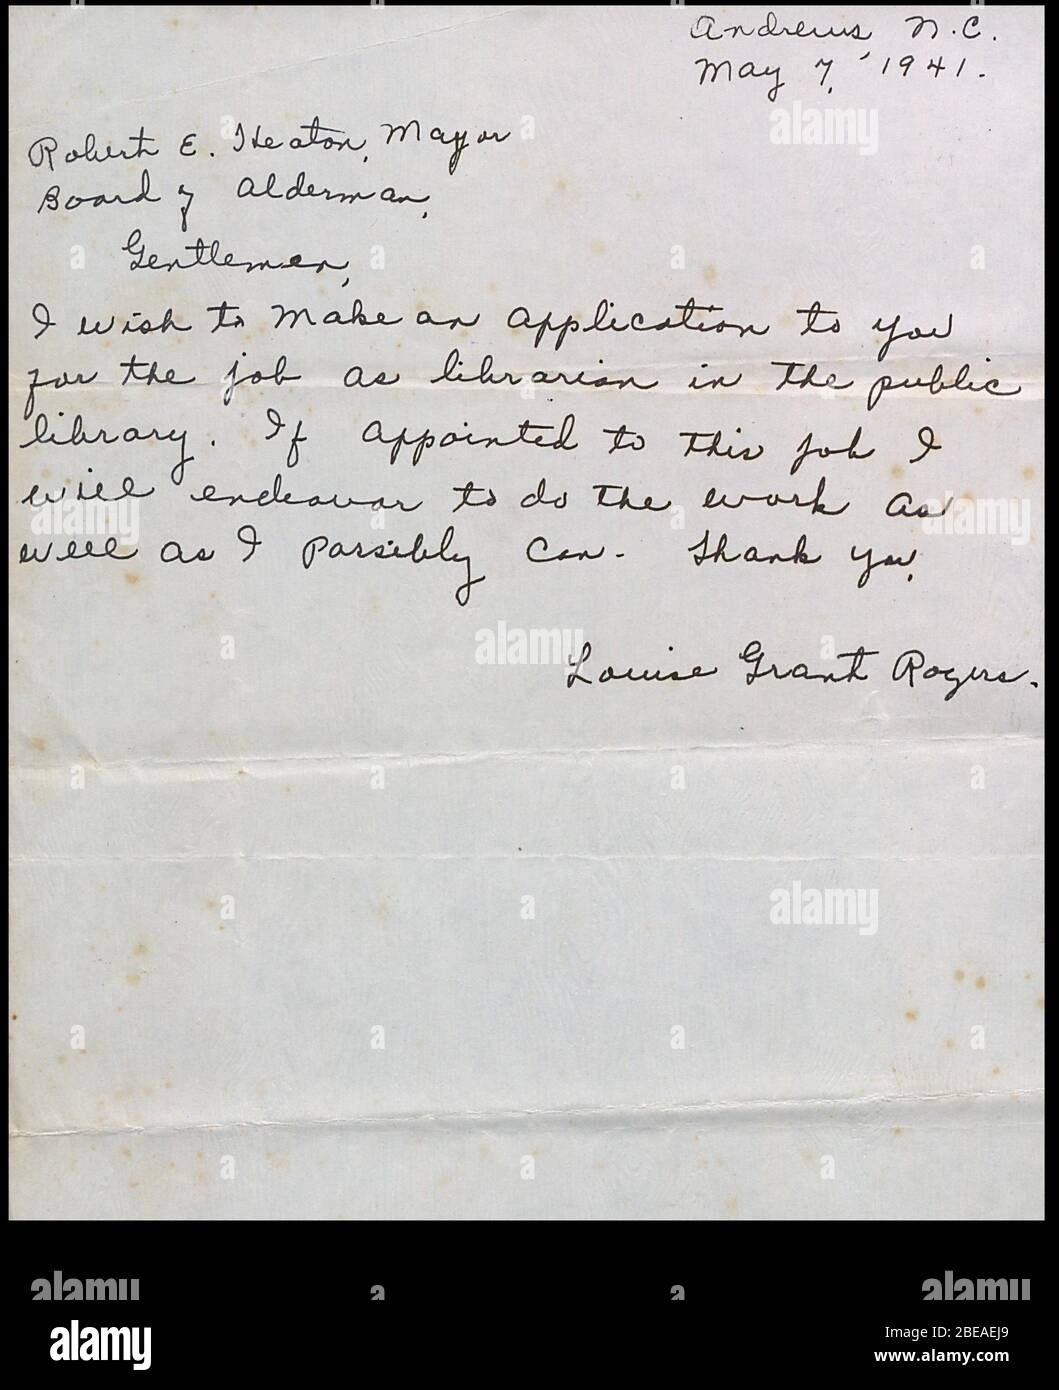 Andrews, N.C.
May 7, 1941.
Robert E. Heaton, Mayor
Board of Alderman,
Gentlemen,
I wish to make an application to you
for the job as librarian in the public
library. If appointed to this job I
will endeavor to do the work as
well as I possibly can. Thank you.
Louise Grant Rogers.
alamy
Image ID: 2BEAEJ9
www.alamy.com